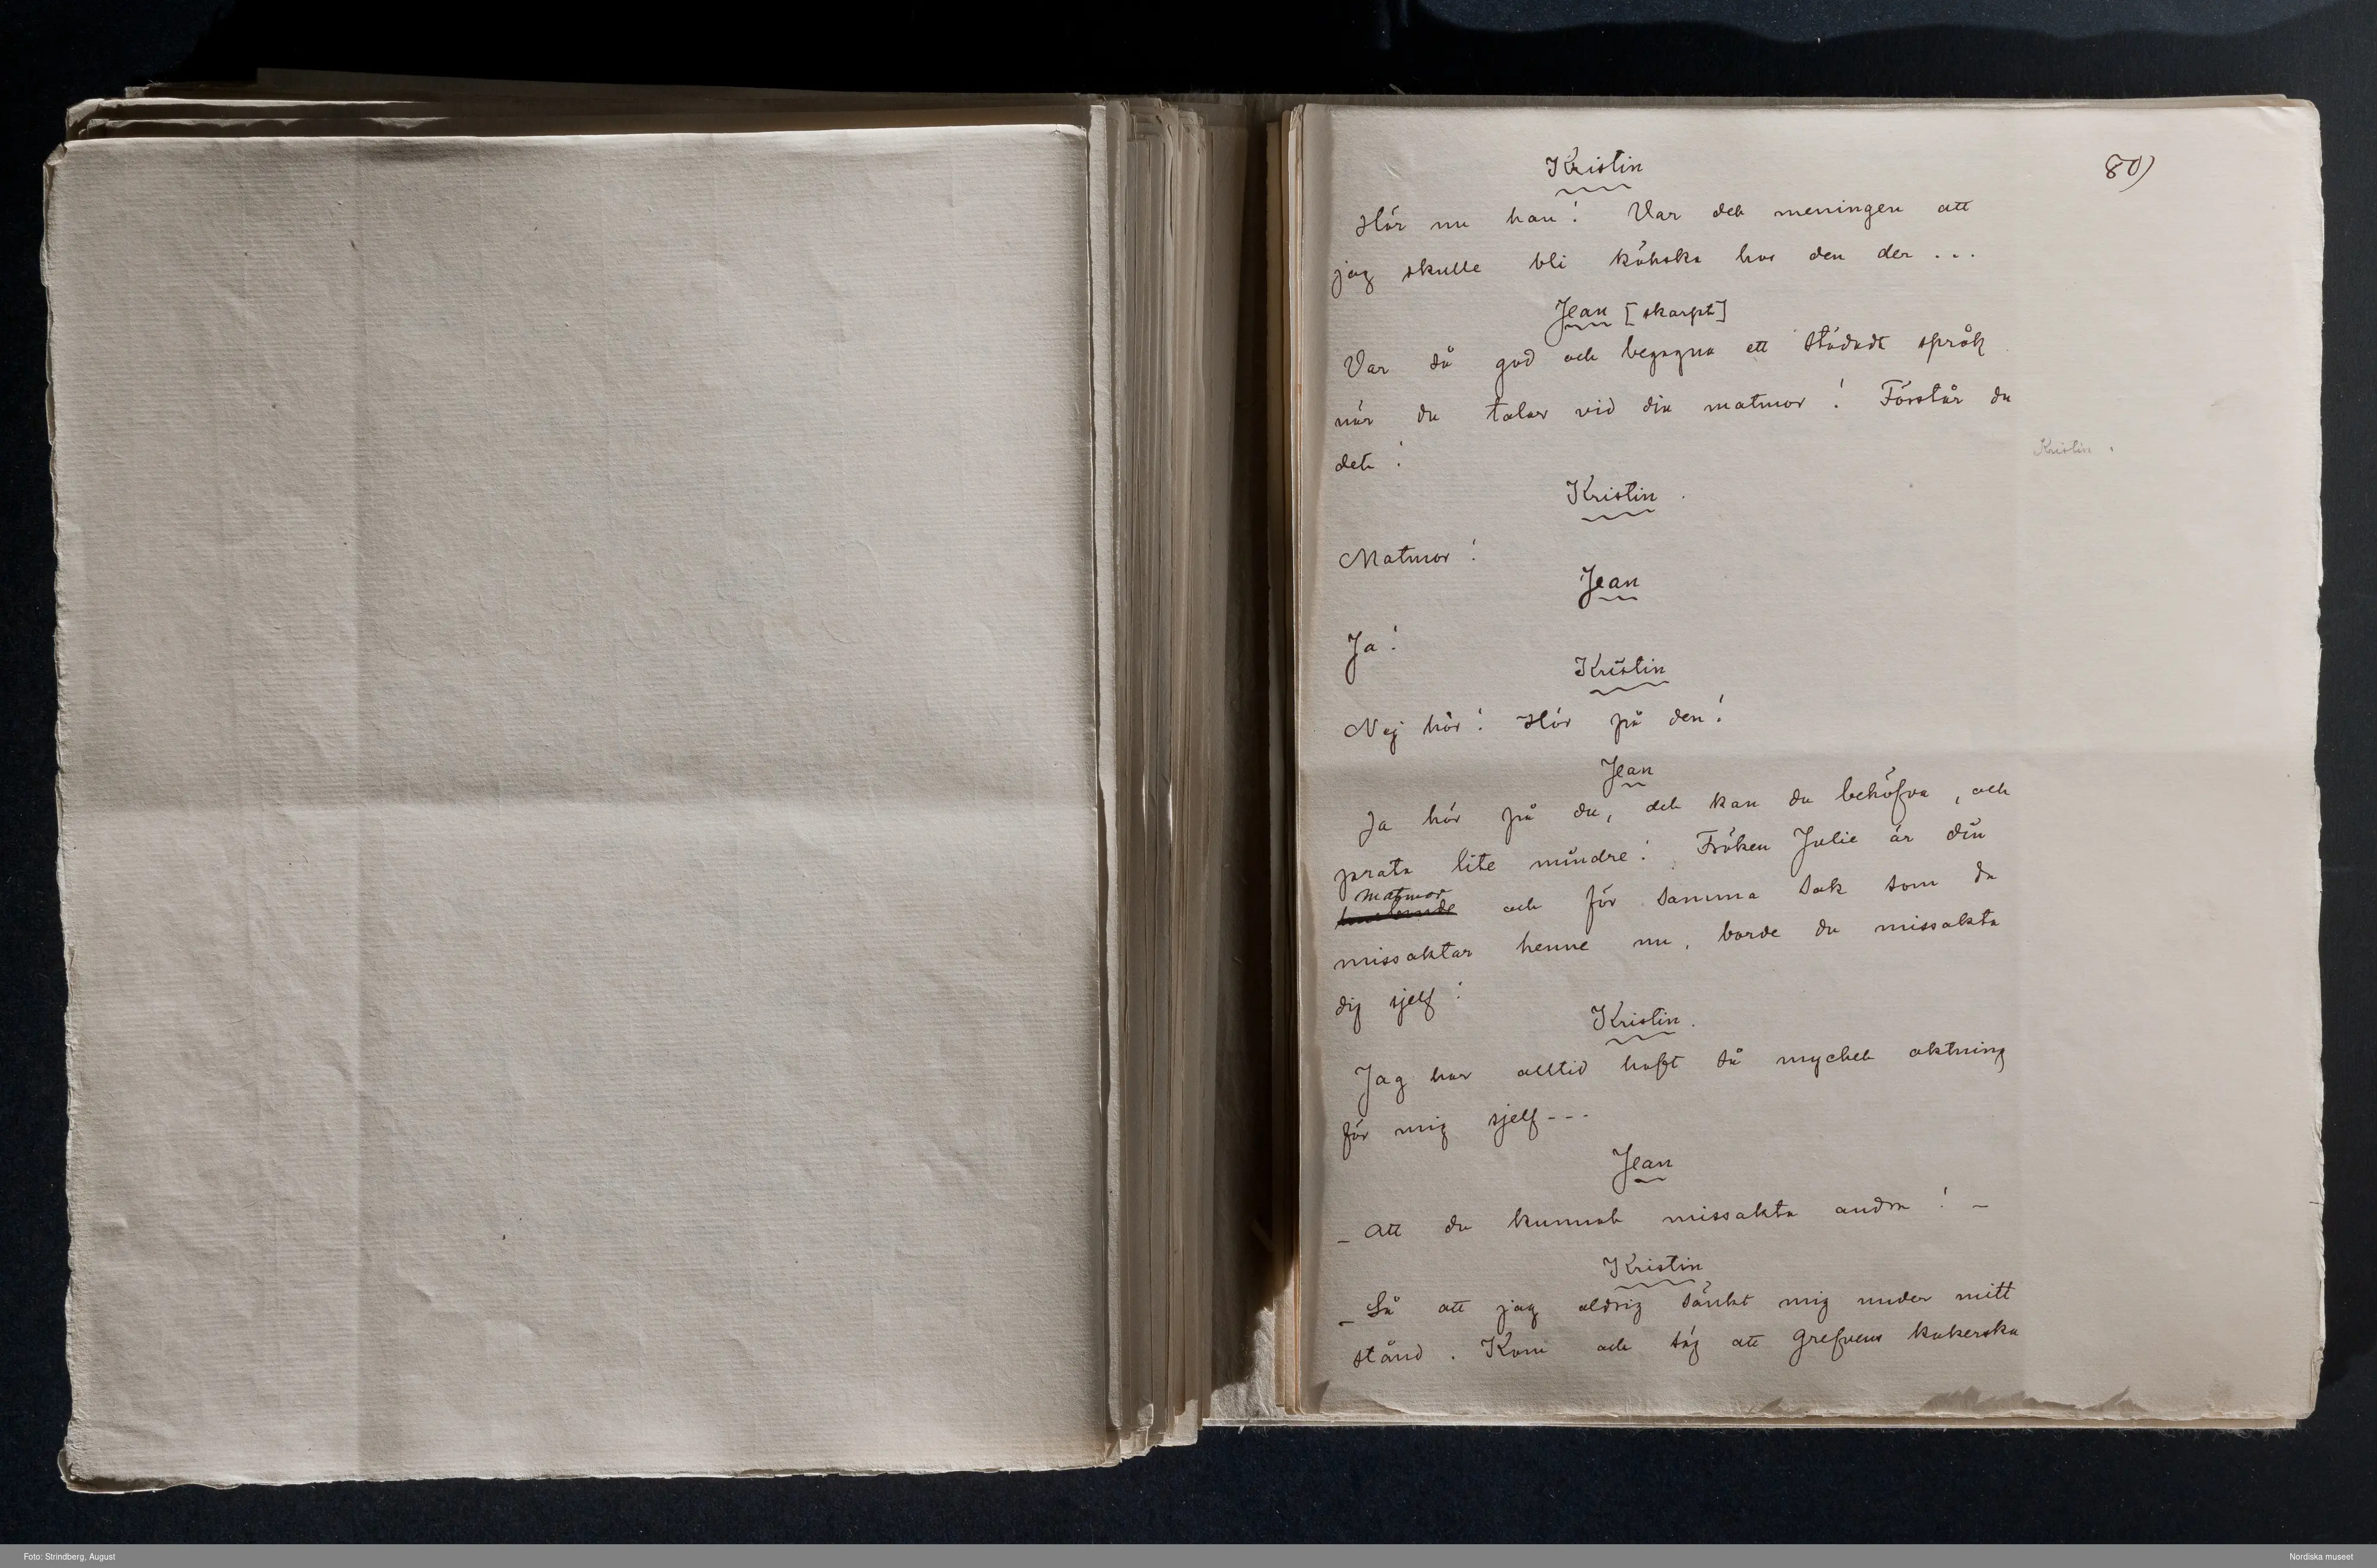 Kristin
80)
Hör nu han! Var det meningen att
jag skulle bli köksa hos den der ...
Jean [skarpt]
Var så god och begagna ett städadt språk
när du talar vid din matmor! Förstår du
det!
Kristin.
Kristin.
Matmor!
Jean
Ja!
Kristin
Nej hör! Hör på den!
Jean
Ja hör på du, det kan du behöfva, och
prata lite mindre! Fröken Julie är din
matmor
och för samma sak som du
missaktar henne nu, borde du missakta
dig sjelf!
Kristin.
Jag har alltid haft så mycket aktning
för mig sjelf ---
Jean
– Att du kunnat missakta andra! –
Kristin
– Så att jag aldrig sänkt mig under mitt
stånd. Kom och säg att grefvens kokerska
Foto: Strindberg, August
Nordiska museet